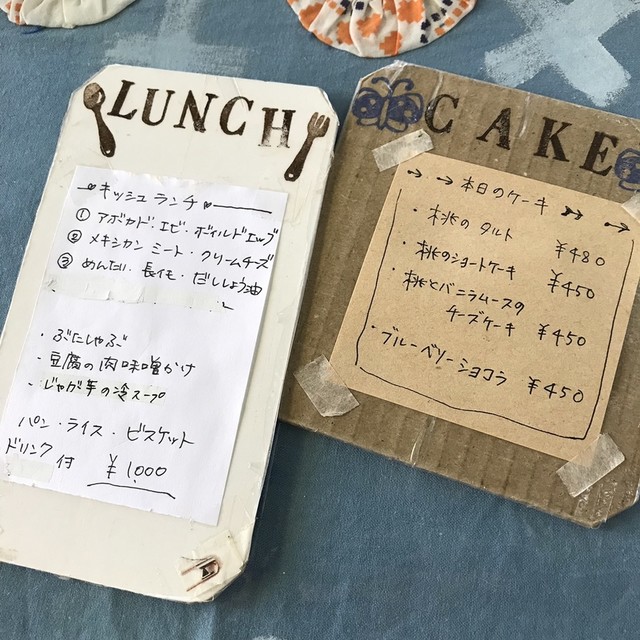 LUNCH
キッシュランチ
① アボカド・エビ・ボイルドエッグ
② メキシカンミート・クリームチーズ
③ めんたい・長イモ・だししょう油
・ぶたしゃぶ
・豆腐の肉味噌かけ
・じゃが芋の冷スープ
パン・ライス・ビスケット
ドリンク付 ¥1,000
CAKE
→ → 本日のケーキ → →
・桃のタルト ¥480
・桃のショートケーキ ¥450
・桃とバニラムースの
チーズケーキ ¥450
・ブルーベリーショコラ ¥450